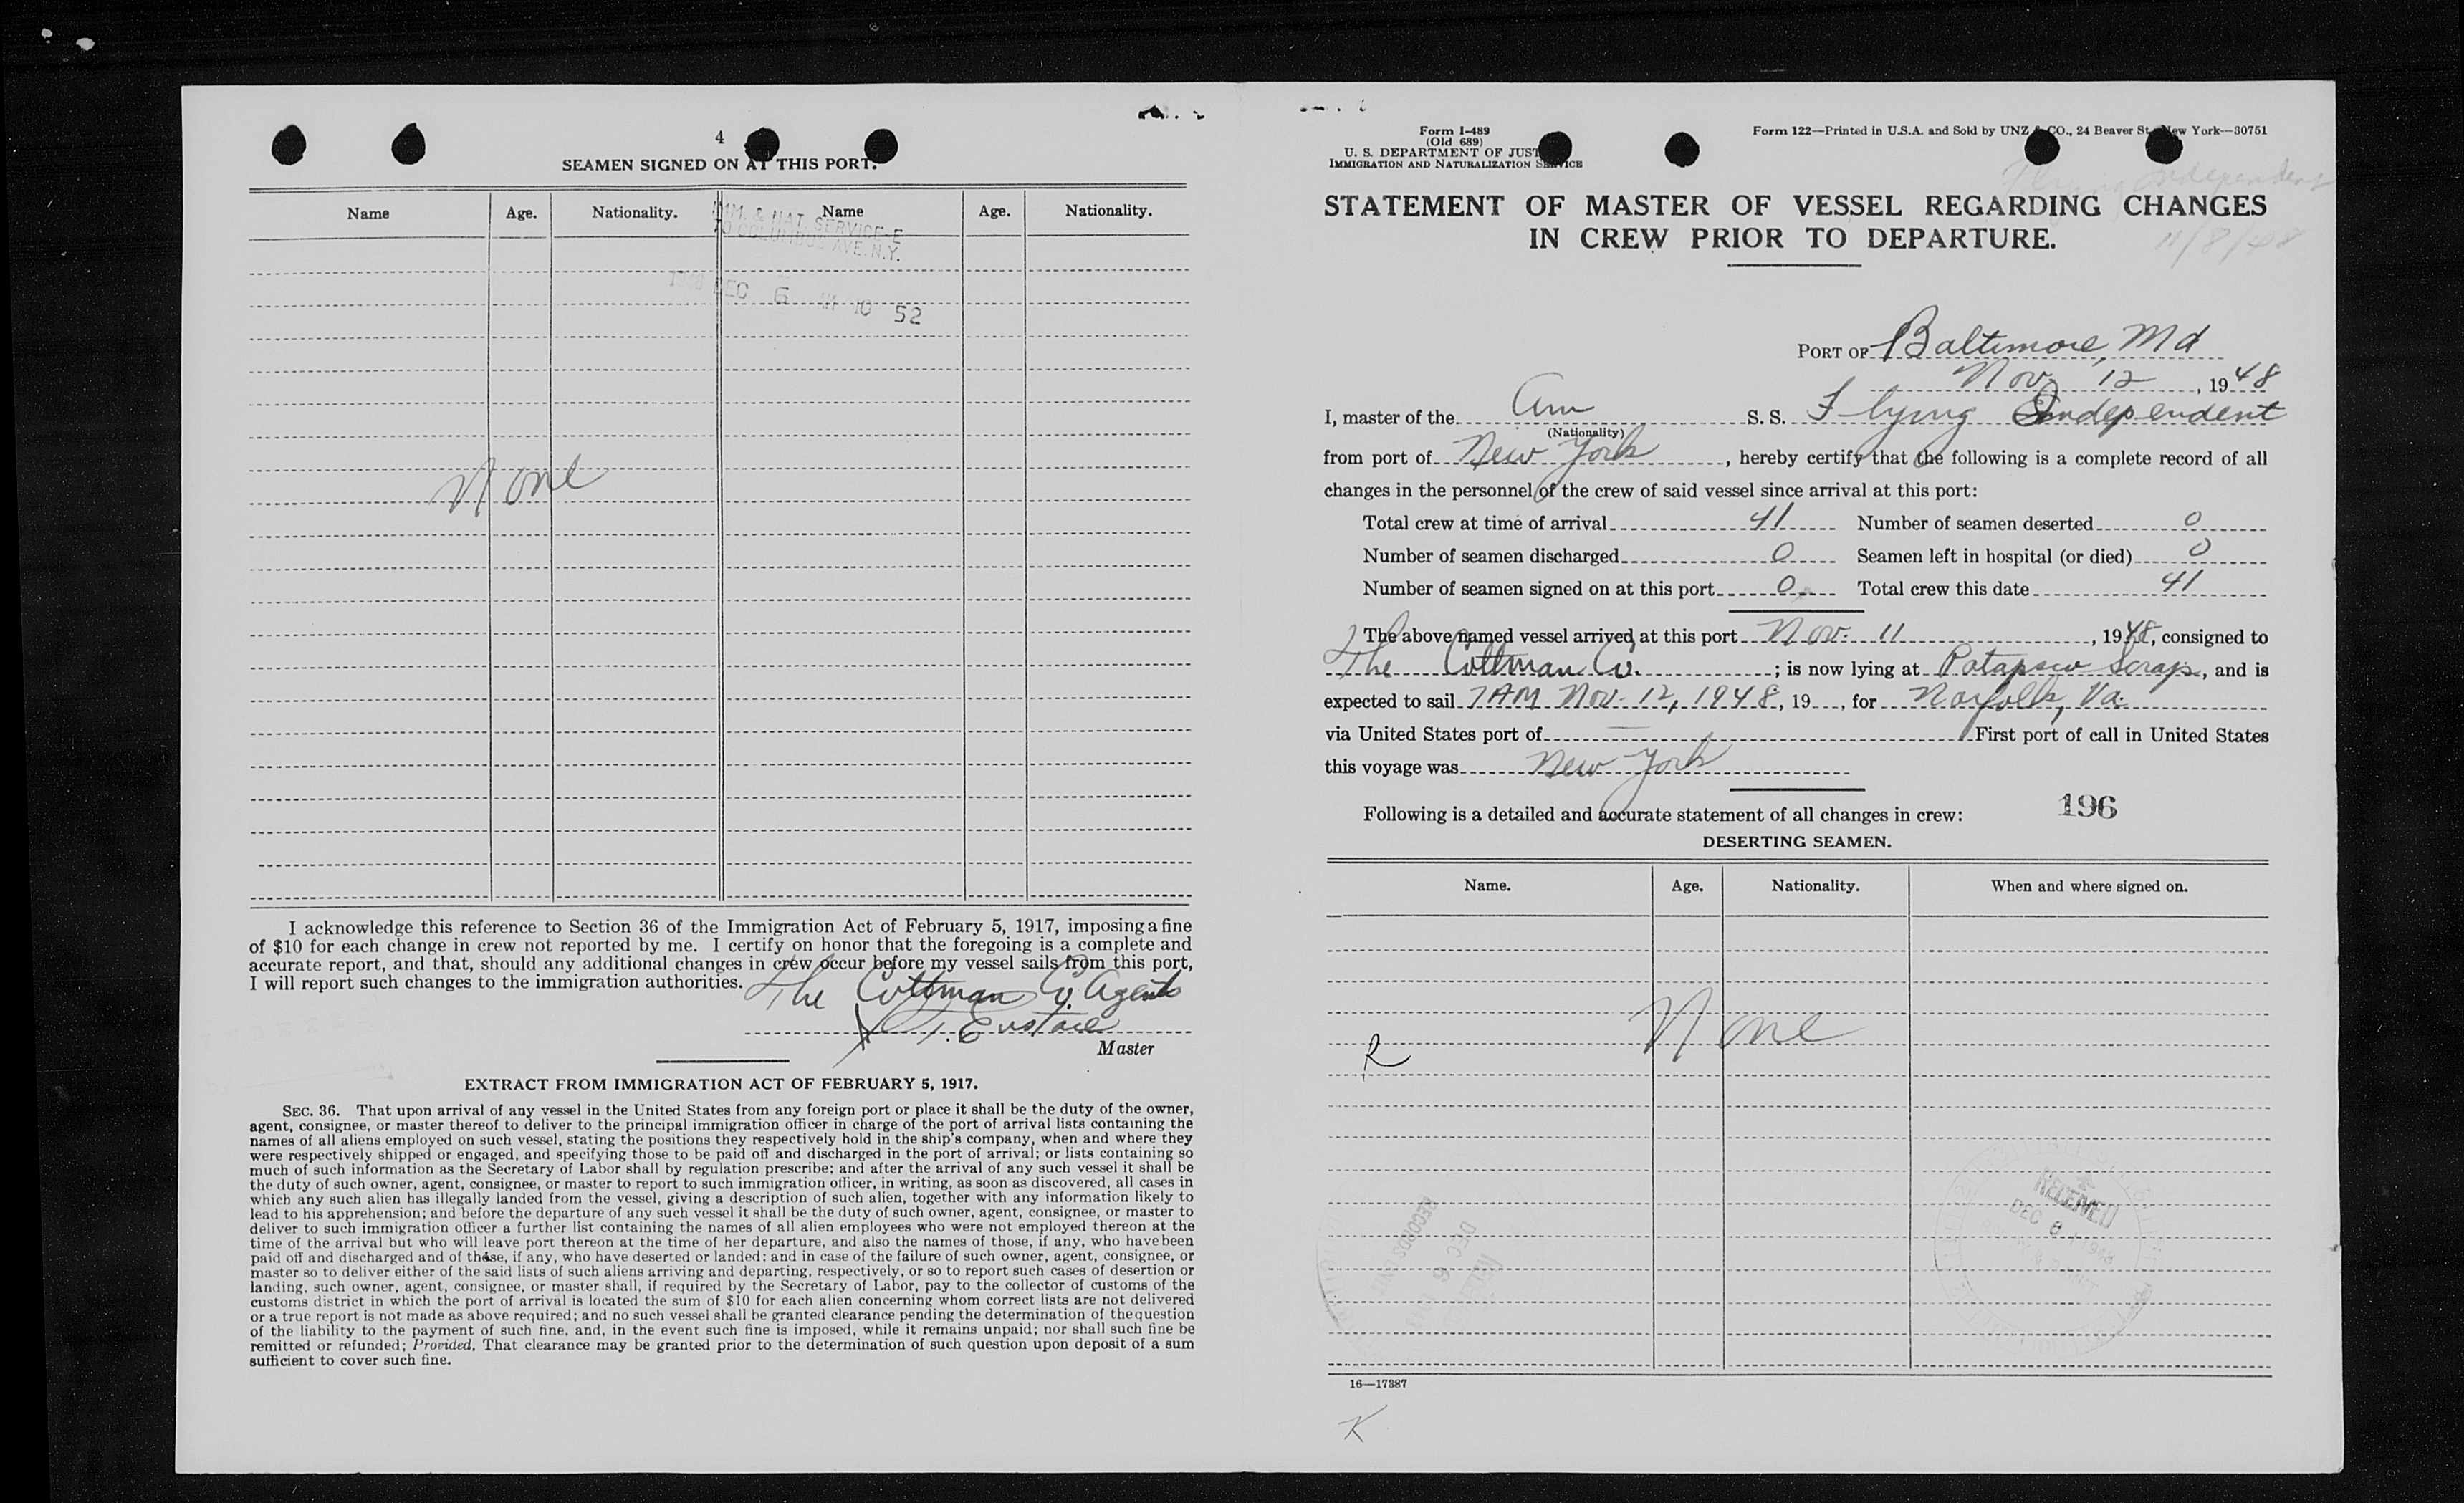 4
SEAMEN SIGNED ON AT THIS PORT.
Name Age. Nationality. Name Age. Nationality.
IMM. & NAT. SERVICE
70 COLUMBUS AVE. N.Y.
DEC 6 AM 10 52
None
I acknowledge this reference to Section 36 of the Immigration Act of February 5, 1917, imposing a fine
of $10 for each change in crew not reported by me. I certify on honor that the foregoing is a complete and
accurate report, and that, should any additional changes in crew occur before my vessel sails from this port,
I will report such changes to the immigration authorities.
The Cottman Co. Agents
Eustace
Master
EXTRACT FROM IMMIGRATION ACT OF FEBRUARY 5, 1917.
SEC. 36. That upon arrival of any vessel in the United States from any foreign port or place it shall be the duty of the owner,
agent, consignee, or master thereof to deliver to the principal immigration officer in charge of the port of arrival lists containing the
names of all aliens employed on such vessel, stating the positions they respectively hold in the ship's company, when and where they
were respectively shipped or engaged, and specifying those to be paid off and discharged in the port of arrival; or lists containing so
much of such information as the Secretary of Labor shall by regulation prescribe; and after the arrival of any such vessel it shall be
the duty of such owner, agent, consignee, or master to report to such immigration officer, in writing, as soon as discovered, all cases in
which any such alien has illegally landed from the vessel, giving a description of such alien, together with any information likely to
lead to his apprehension; and before the departure of any such vessel it shall be the duty of such owner, agent, consignee, or master to
deliver to such immigration officer a further list containing the names of all alien employees who were not employed thereon at the
time of the arrival but who will leave port thereon at the time of her departure, and also the names of those, if any, who have been
paid off and discharged and of those, if any, who have deserted or landed; and in case of the failure of such owner, agent, consignee, or
master so to deliver either of the said lists of such aliens arriving and departing, respectively, or so to report such cases of desertion or
landing, such owner, agent, consignee, or master shall, if required by the Secretary of Labor, pay to the collector of customs of the
customs district in which the port of arrival is located the sum of $10 for each alien concerning whom correct lists are not delivered
or a true report is not made as above required; and no such vessel shall be granted clearance pending the determination of the question
of the liability to the payment of such fine, and, in the event such fine is imposed, while it remains unpaid; nor shall such fine be
remitted or refunded; Provided, That clearance may be granted prior to the determination of such question upon deposit of a sum
sufficient to cover such fine.
Form I-489
(Old 689)
U. S. DEPARTMENT OF JUST
IMMIGRATION AND NATURALIZATION SERVICE
Form 122—Printed in U.S.A. and Sold by UNZ & CO., 24 Beaver St., New York—30751
Flying Independent
11/8/48
STATEMENT OF MASTER OF VESSEL REGARDING CHANGES
IN CREW PRIOR TO DEPARTURE.
PORT OF Baltimore, Md
Nov. 12, 1948
I, master of the Am S. S. Flying Independent
(Nationality)
from port of New York, hereby certify that the following is a complete record of all
changes in the personnel of the crew of said vessel since arrival at this port:
Total crew at time of arrival 41 Number of seamen deserted 0
Number of seamen discharged 0 Seamen left in hospital (or died) 0
Number of seamen signed on at this port 0 Total crew this date 41
The above named vessel arrived at this port Nov. 11, 1948, consigned to
The Cottman Co.; is now lying at Patapsco Scrap, and is
expected to sail 7 AM Nov. 12, 1948, 19 , for Norfolk, Va.
via United States port of — First port of call in United States
this voyage was New York
Following is a detailed and accurate statement of all changes in crew: 196
DESERTING SEAMEN.
Name. Age. Nationality. When and where signed on.
None
R
RECEIVED
DEC 6 1948
RECORDS
DEC 6
16—17387
K